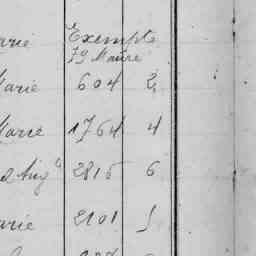 arie Exempte
79 Maure
Marie 604 2
Marie 1764 4
d Aug" 2816 6
arie 2101 5